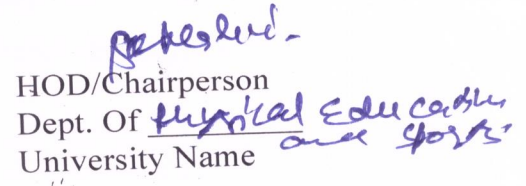 HOD/Chairperson
Dept. Of Physical Education
and Sports
University Name